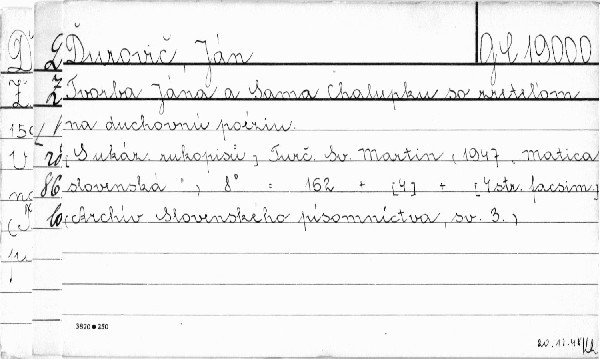 Ďurovič, Ján
Gč 19000
Tvorba Jána a Sama Chalupku so zreteľom
na duchovnú poéziu.
(Sukár. rukopisů) Turč. Sv. Martin, 1947, Matica
slovenská", 8° = 162 + [4] + [4 str. facsim.]
(Archív Slovenského písomníctva, sv. 3.)
3820●250
20.12.48